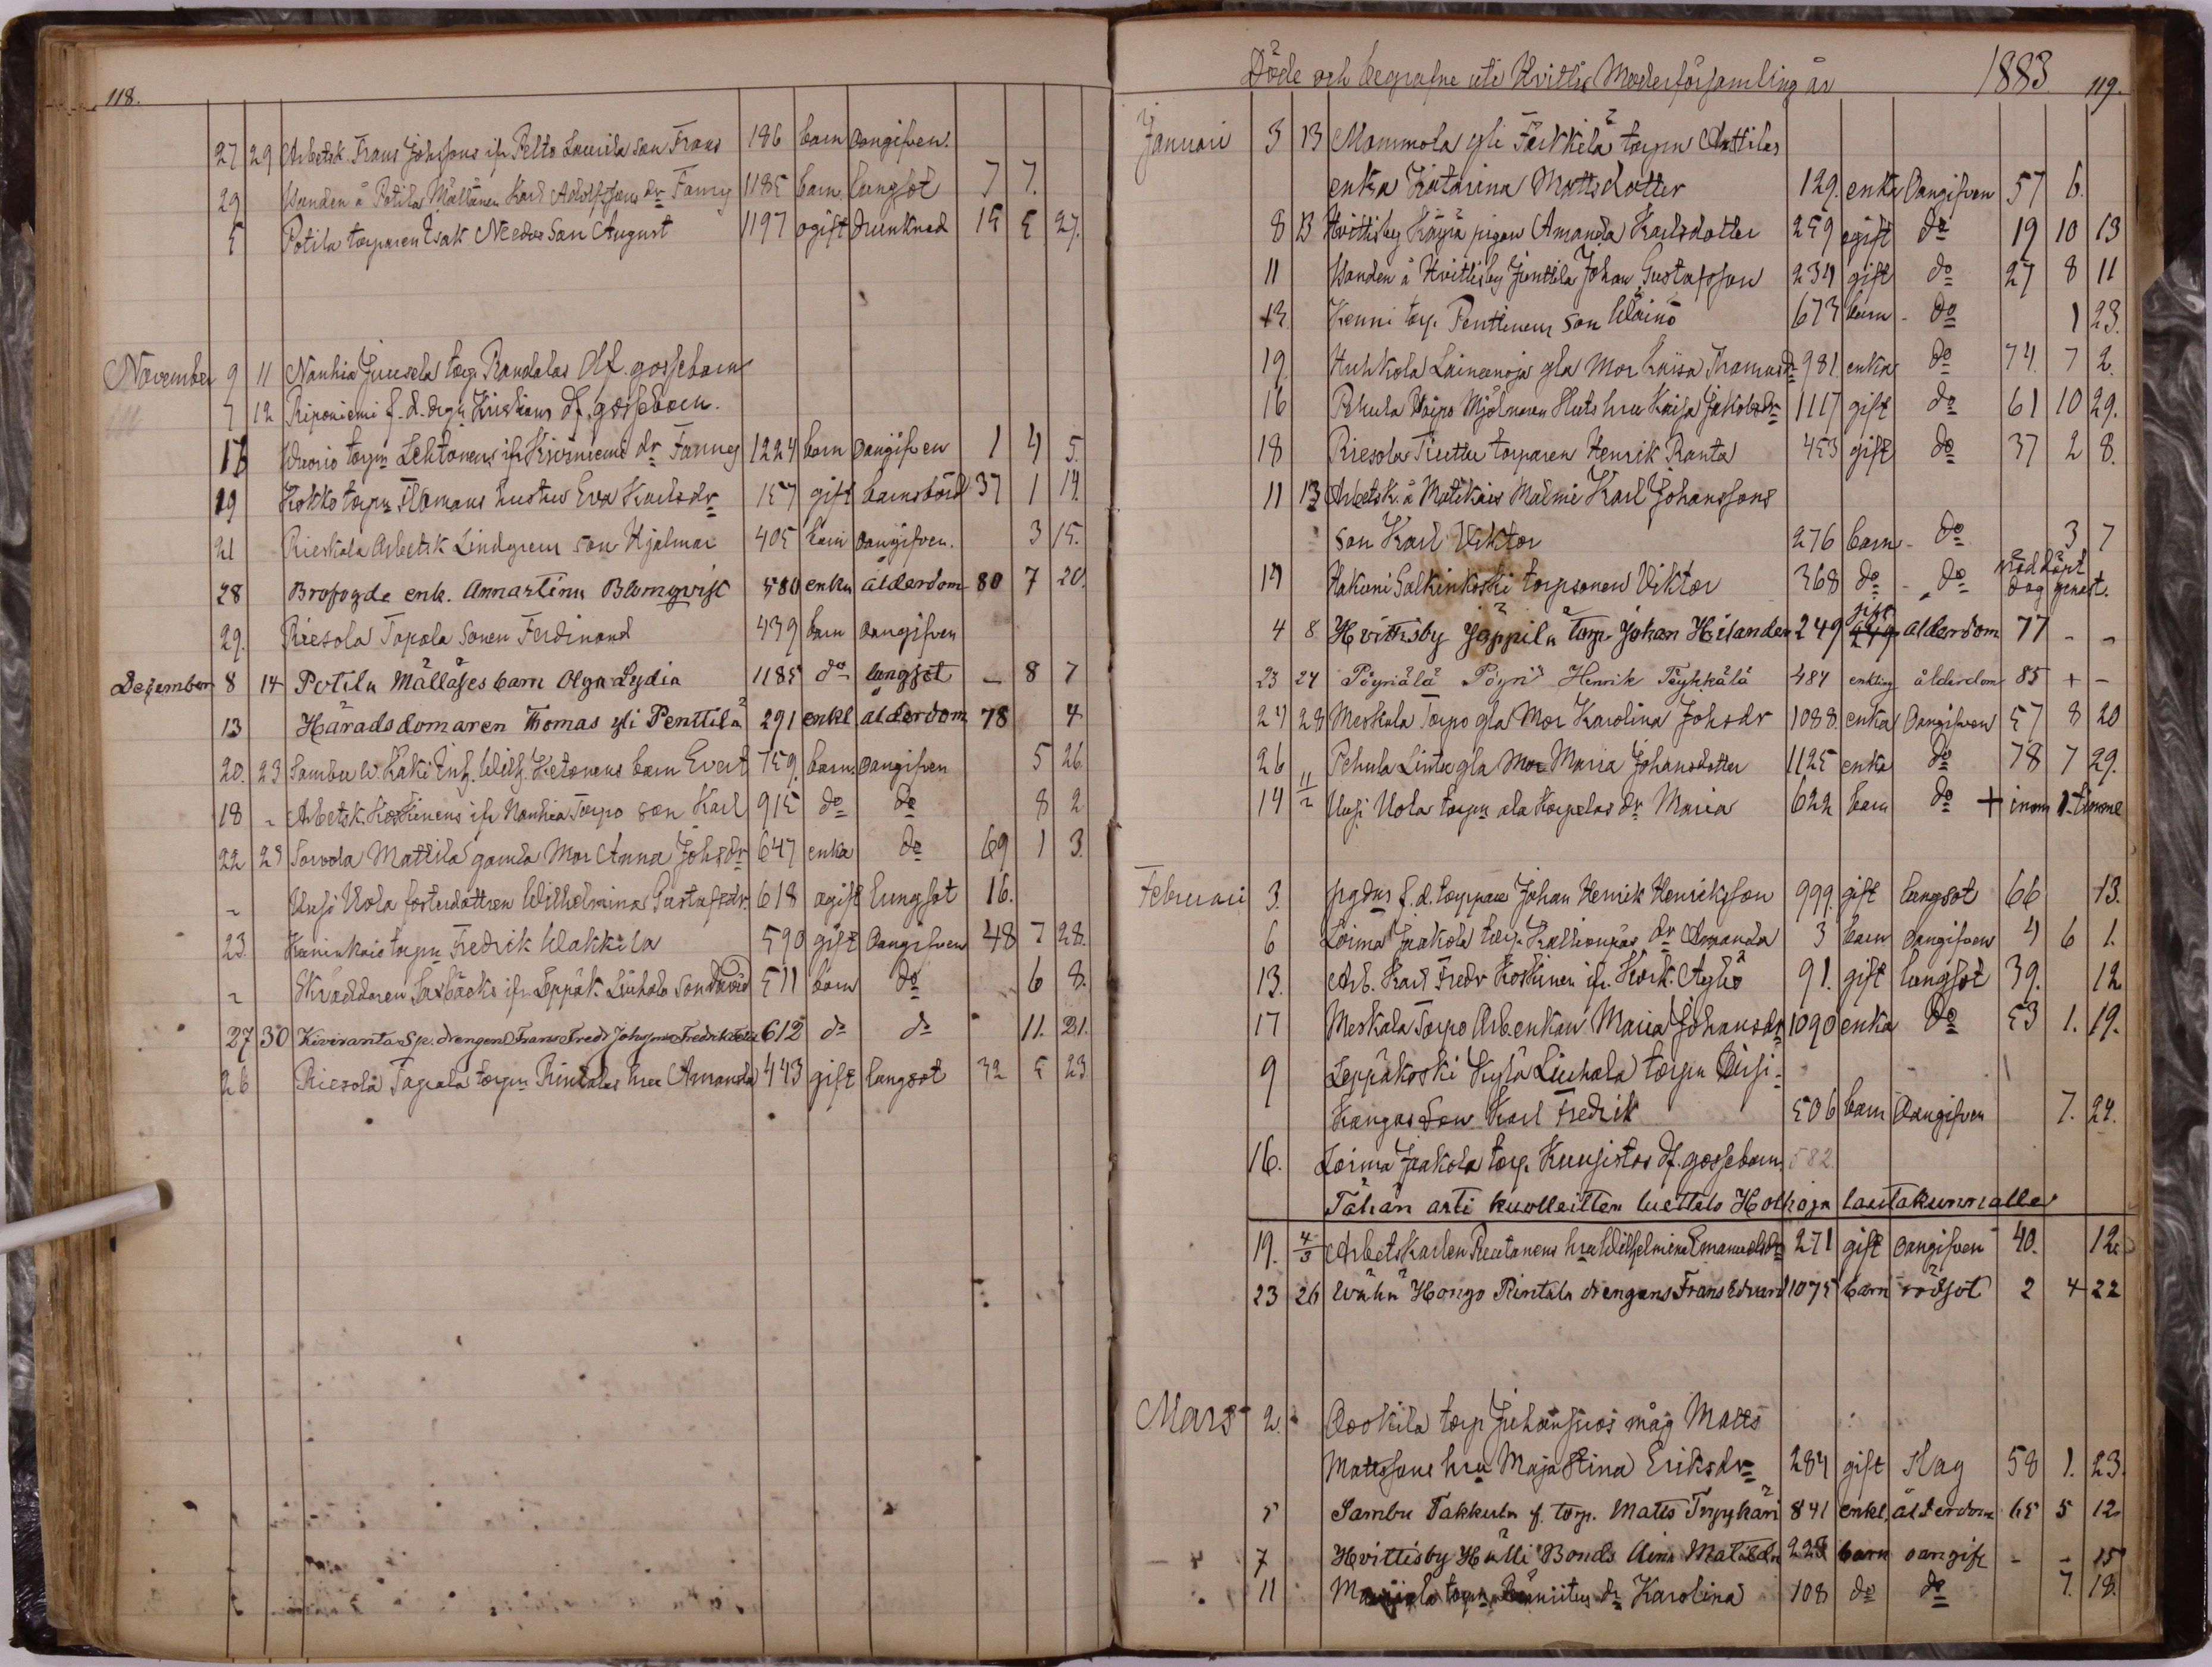 118.
27 29 Arbetsk. Frans Johssons ifr Pelto Laurila son Frans 186 barn oangifven.
29 Handen å Potila Mällänen Karl Adolfssons dr Fanny 1185 barn lungsot 7 7.
5 Potila torparen Isak son August 1197 ogift drunknad 15 5 27.
November 9 11 Nanhia Juusela torp. Randalas df. gossebarn
7 12 Riponiemi f. d. drgn Kristians df. gossebarn.
16 Wuorio torpn Lehtonens ifr Kiviniemi dr Fanny 1224 barn oangifven 1 4 5.
19 Kokko torpn Flomans hustru Eva Karlsdr 157 gift barnsbörd 37 1 14.
21 Rieskala Arbetsk Lindgrens son Hjalmar 405 barn oangifven. 3 15.
28 Brofogde enk. Annastina Blomqvist 580 enka ålderdom 80 7 20.
29. Riesola Tapola sonen Ferdinand 439 barn oangifven
December 8 14 Potila Mälläses barn Olga Lydia 1185 do lungsot - 8 7
13 Häradsdomaren Thomas yli Penttilä 291 enkl ålderdom 78 4
20. 23 Sambu w. Raki Inh. Wilh. Ketonens barn Evert 759. barn oangifven 5 26
18 - Arbetsk. Koskinens ifr Nanhia Torpo son Karl 915 do do 8 2
22 29 Sorvola Mattila gamla Mor Anna Johsdr 647 enka do 69 1 3.
- Uusi Uola fosterdottren Wilhelmina Gustafsdr. 618 ogift lungsot 16.
23. Kaninkais torpn Fredrik Wakkila 590 gift oangifven 48 7 28.
- Skräddaren Saxbäcks ifr. Leppäk. Liuhala son David 511 barn do 6 8.
27 30 Kiviranta Sp. drengen Frans Fredr Johssons Fredrik 612 do do 11. 21.
26 Riesola Tapala torpn Rintalas hru Amanda 443 gift lungsot 32 5 23
Döde och begrafne uti Hvittis Moderförsamling år 1883 119.
Januari 3 13 Mommola yli Farkkila torpn Anttilas
enka Katarina Mattsdotter 129. enka Oangifven 57 6.
8 13 Hvittisby Käyrä pigan Amanda Karlsdotter 259 ogift do 19 10 13
11 Handen å Hvittisby Junttila Johan Gustafsson 234 gift do 27 8 11
12 Kenni torp. Penttinens son Wäinö 673 barn - do 1 23.
19. Huhkola Laineenoja gla Mor Kaisa Thomasdr 981 enka do 74. 7 2.
16 Pehula Raipo Mjölnaren Huts hru Kaisa Jakobsdr 1117 gift do 61 10 29.
18 Riesola Tiuttu torparen Henrik Ranta 453 gift do 37 2 8.
11 13 Arbetsk. å Matikais Malmi Karl Johanssons
son Karl Viktor 276 barn - do 3 7
14 Hakuni Salkinkoski torpsonen Viktor 368 do - do nöddöpt dog genast.
4 8 Hvittisby Jäppilä torp Johan Hilander 249 gift ålderdom 77 - -
23 24 Pöyriälä Pöyri Henrik Töykkälä 484 enkling ålderdom 85 + -
24 28 Meskala Torpo gla Mor Karolina Johsdr 1088. enka Oangifven 57 8 20
26 Pehula Lintu gla Mor Maria Johansdotter 1125 enka do 78 7 29.
14 11/2 Uusi Uola torpn ala Korpelas dr Maria 622 barn do + inom 1. timme
Februari 3. f. d. torppare Johan Henrik Henriksson 999. gift lungsot 66 13.
6 Loima Jaakola torp. Kallionpääs dr Amanda 3 barn oangifven 4 6 1.
13. Arb. Karl Fredr Koskinen ifr. Kork. Äyhö 91. gift lungsot 39. 12
17 Meskala Torpo Arb.enkan Maria Johansdr 1090 enka do 53 1. 19.
9 Leppäkoski Kylä Liuhala torpn Uusi-
Kangas son Karl Fredrik 506 barn Oangifven 7. 24.
16. Loima Jaakola torp. Kuusistos df. gossebarn. 582.
Tähän asti kuolleitten luettelo Holhoja lautakunnalle
19. 4/3 Arbetskarlen Ruutanens hru Wilhelmina Emanuelsdr 271 gift oangifven 40. 12
23 26 Wähä Hongo Rintala drengens Frans Edvard 1075 barn rödsot 2 4 22
Mars 2. Raskila torp Juhansuos måg Matts
Mattssons hru Maja Stina Eriksdr 284 gift Slag 58 1. 23.
5 Sambu Takkula f. torp. Matts Tryykäri 841 enkl. ålderdom 65 5 12
7 Hvittisby Hälli Bonds Aina Matilda 228 barn oangif - - 15
11 torpn dr Karolina 108 do do 7. 18.